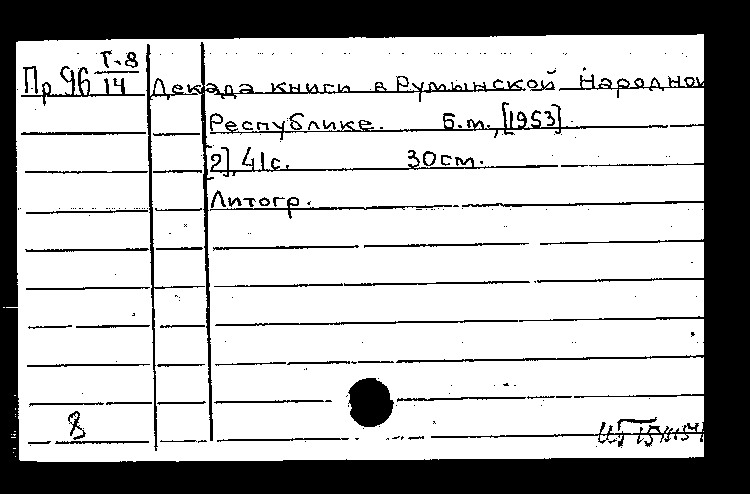 Пр 96 Г-8/14 Декада книги в Румынской Народной
Республике. Б.м., [1953].
[2], 41с. 30см.
Литогр.
8